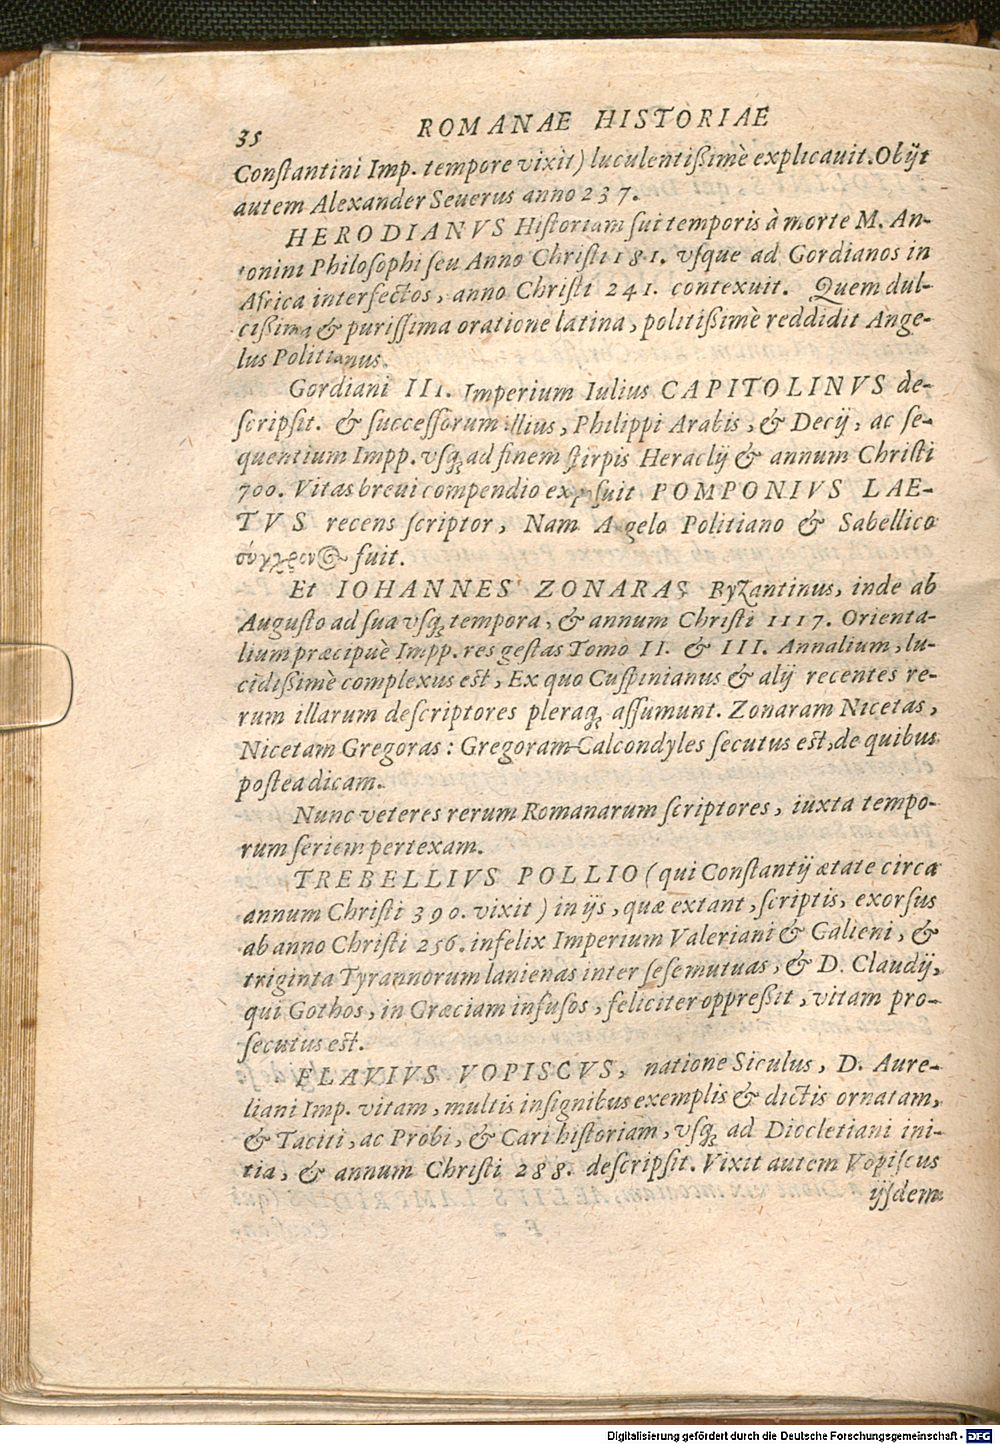 35 ROMANAE HISTORIAE
Conſtantini Imp. tempore vixit) luculentißimè explicauit. Obijt
autem Alexander Seuerus anno 237.
HERODIANVS Hiſtoriam ſui temporis à morte M. An-
tonini Philoſophi ſeu Anno Chriſti 181. vſque ad Gordianos in
Africa interfectos, anno Chriſti 241. contexuit. Quem dul-
cißima & puriſſima oratione latina, politißimè reddidit Ange-
lus Politianus.
Gordiani III. Imperium Iulius CAPITOLINVS de-
ſcripſit. & ſucceſſorum illius, Philippi Arabis, & Decij, ac ſe-
quentium Impp. vſq; ad finem ſtirpis Heraclij & annum Chriſti
700. Vitas breui compendio expoſuit POMPONIVS LAE-
TVS recens ſcriptor, Nam Angelo Politiano & Sabellico
σύγχρον fuit.
Et IOHANNES ZONARAS Byzantinus, inde ab
Auguſto ad ſua vſq; tempora, & annum Chriſti 1117. Orienta-
lium præcipuè Impp. res geſtas Tomo II. & III. Annalium, lu-
cidißimè complexus est, Ex quo Cuſpinianus & alij recentes re-
rum illarum deſcriptores pleraq; aſſumunt. Zonaram Nicetas,
Nicetam Gregoras: Gregoram Calcondyles ſecutus est, de quibus
poſtea dicam.
Nunc veteres rerum Romanarum ſcriptores, iuxta tempo-
rum ſeriem pertexam.
TREBELLIVS POLLIO (qui Conſtantij ætate circa
annum Chriſti 390. vixit) in ijs, quæ extant, ſcriptis, exorſus
ab anno Chriſti 256. infelix Imperium Valeriani & Galieni, &
triginta Tyrannorum lanienas inter ſeſe mutuas, & D. Claudij,
qui Gothos, in Græciam infuſos, feliciter oppreßit, vitam pro-
ſecutus est.
FLAVIVS VOPISCVS, natione Siculus, D. Aure-
liani Imp. vitam, multis inſignibus exemplis & dictis ornatam,
& Taciti, ac Probi, & Cari hiſtoriam, vſq; ad Diocletiani ini-
tia, & annum Chriſti 288. deſcripſit. Vixit autem Vopiſcus
ijſdem
Digitalisierung gefördert durch die Deutsche Forschungsgemeinschaft - DFG